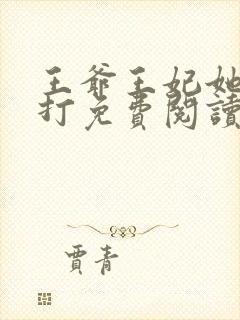 王爺王妃她
打免費閱讀
賈青